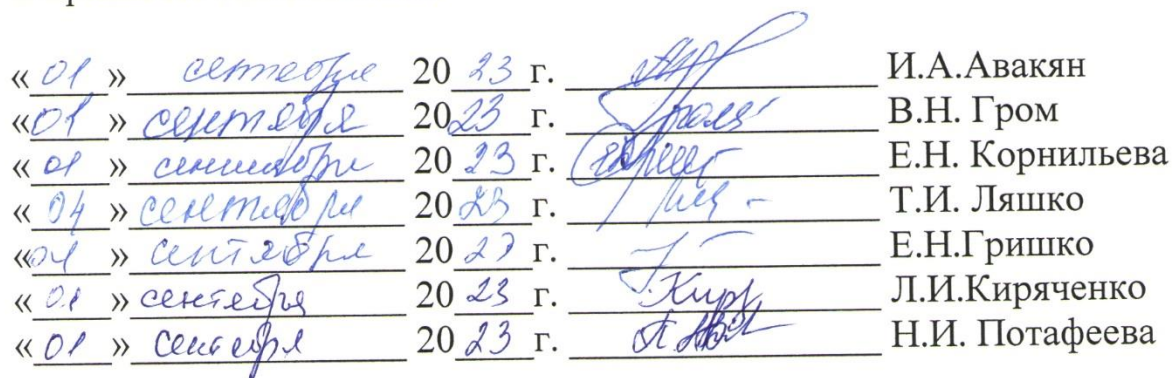 « 01 » сентября 20 23 г. И.А.Авакян
« 01 » сентября 20 23 г. В.Н. Гром
« 01 » сентября 20 23 г. Е.Н. Корнильева
« 04 » сентября 20 23 г. Т.И. Ляшко
« 01 » сентября 20 23 г. Е.Н.Гришко
« 01 » сентября 20 23 г. Л.И.Киряченко
« 01 » сентября 20 23 г. Н.И. Потафеева